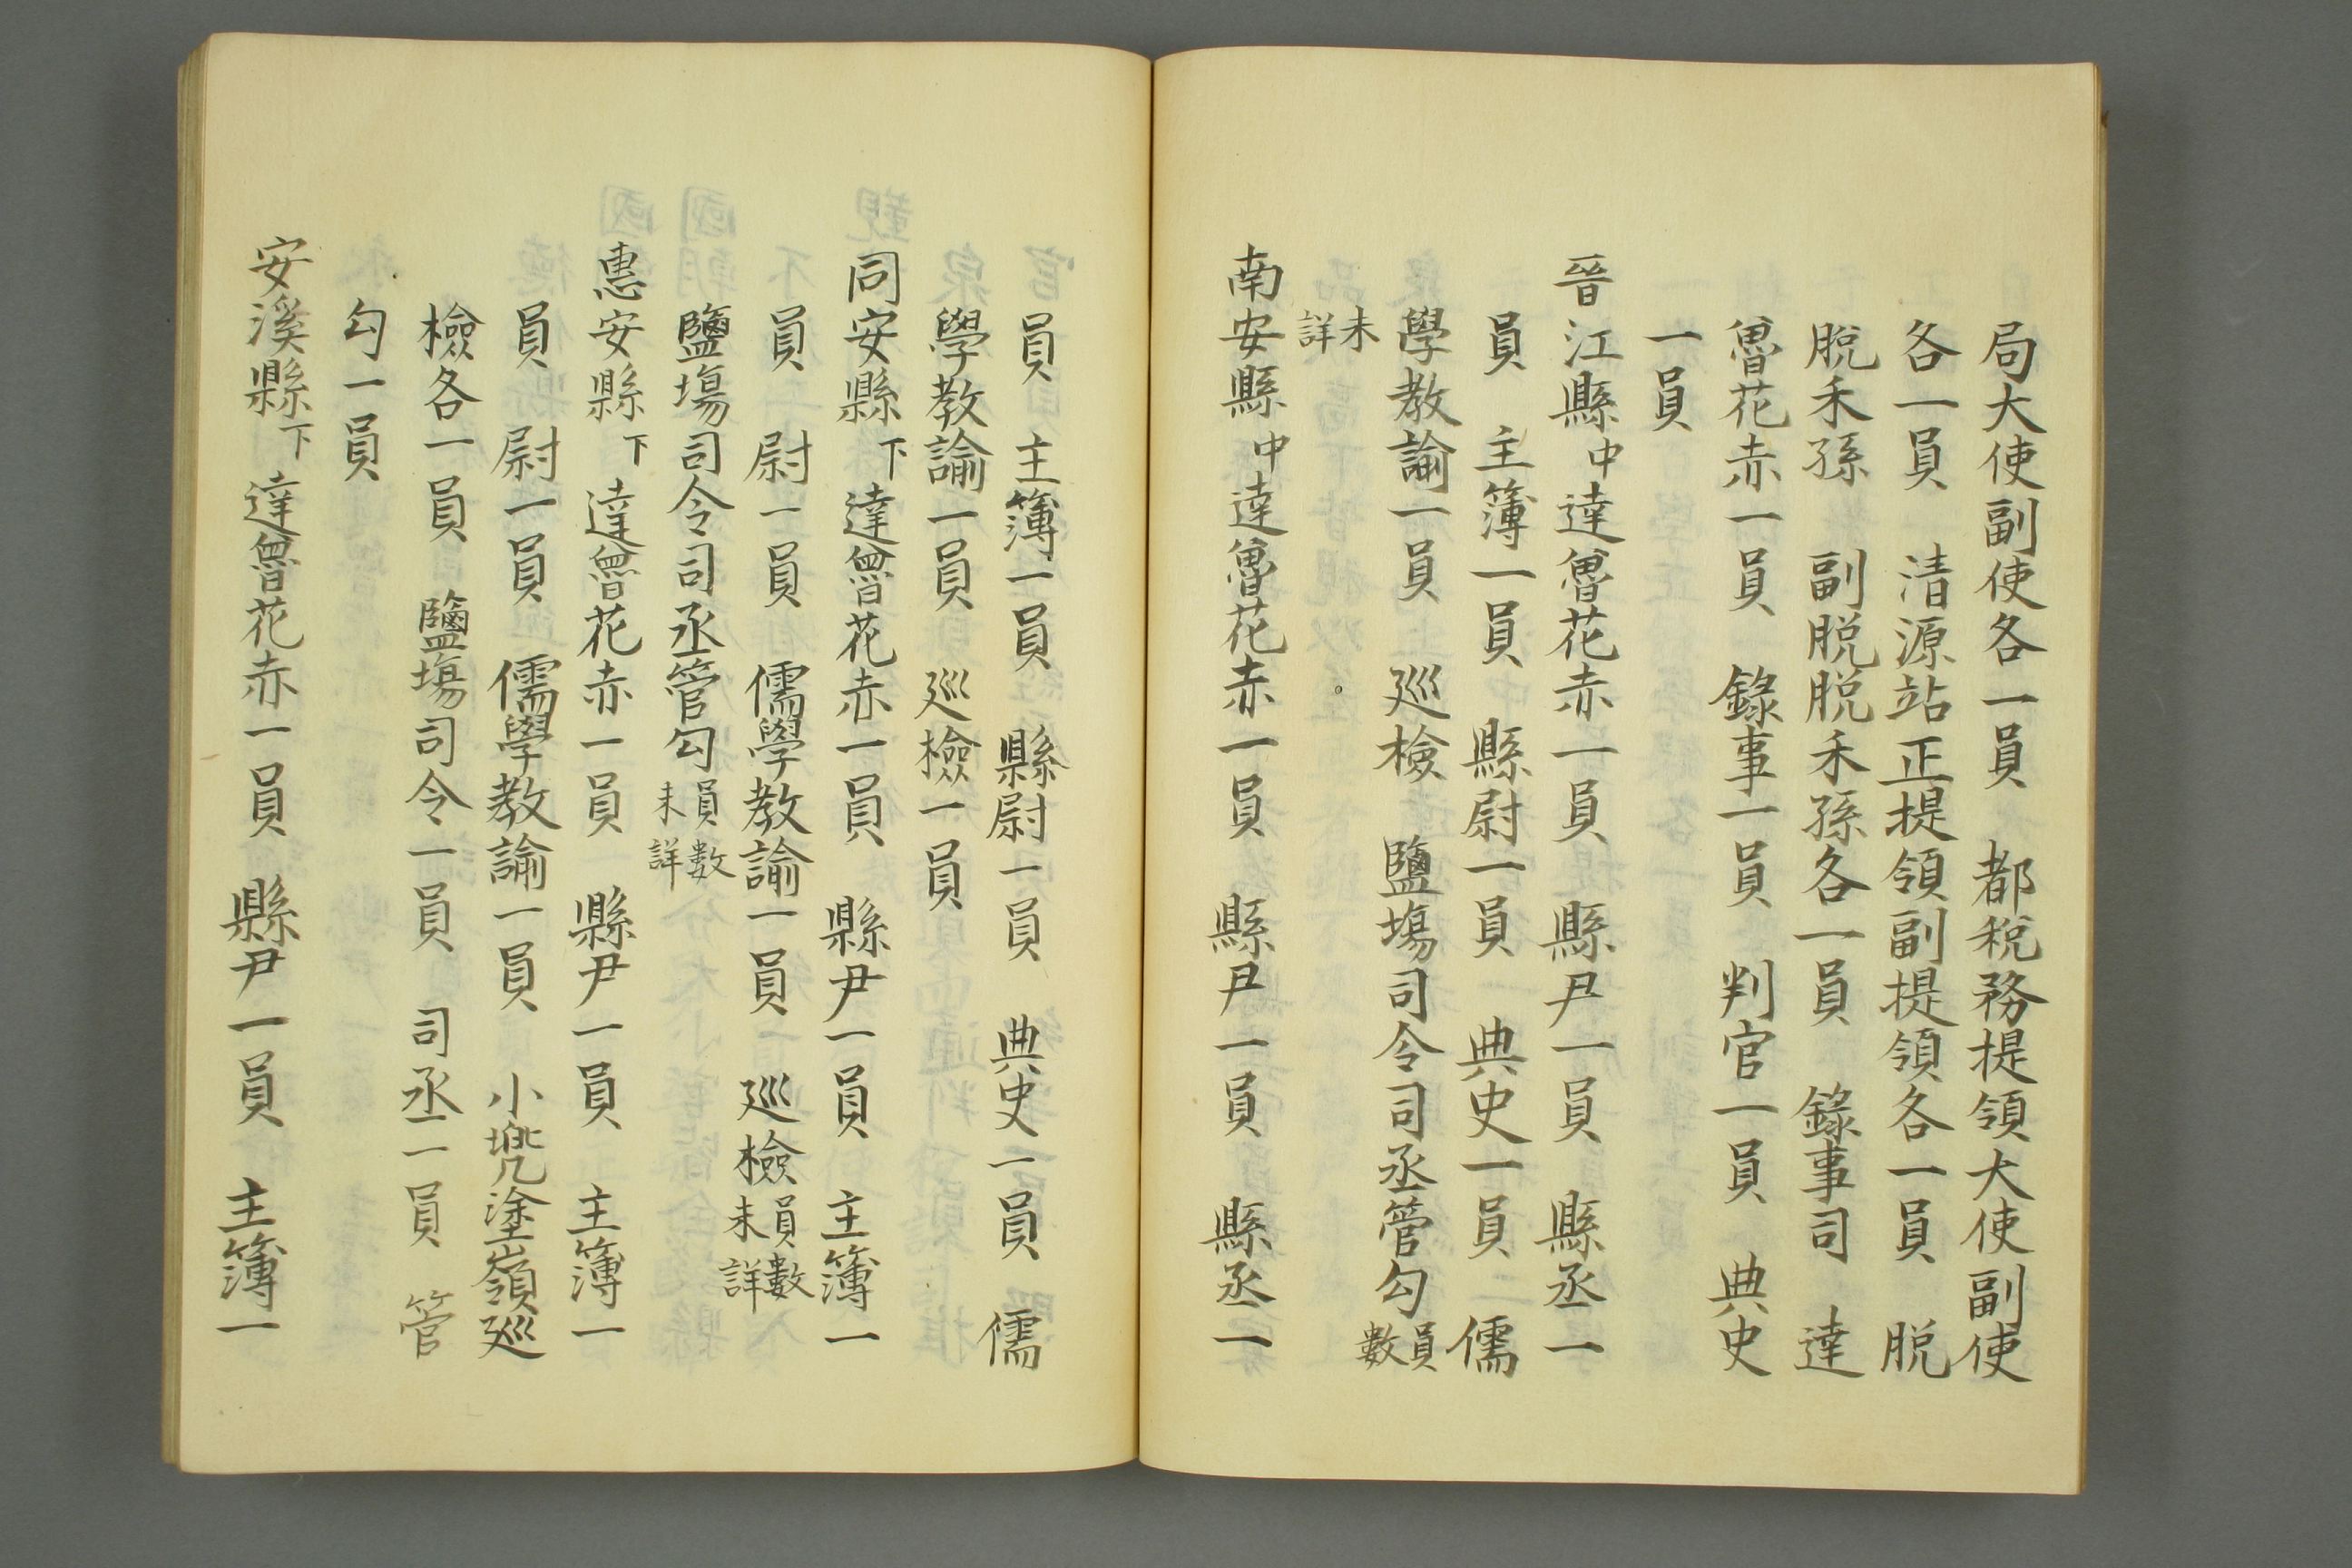 局大使副使各一員　都税務提領大使副使
各一員　清源站正提領副提領各一員　脱
脱禾孫　副脱脱禾孫各一員　錄事司　達
魯花赤一員　錄事一員　判官一員　典史
一員
晉江縣中達魯花赤一員　縣尹一員　縣丞一
員　主簿一員　縣尉一員　典史一員　儒
學教諭一員　巡檢　鹽塲司令司丞管勾員數
未詳
南安縣中達魯花赤一員　縣尹一員　縣丞一
員　主簿一員　縣尉一員　典史一員　儒
學教諭一員　巡檢一員
同安縣下達魯花赤一員　縣尹一員　主簿一
員　尉一員　儒學教諭一員　巡檢員數未詳
鹽塲司令司丞管勾員數未詳
惠安縣下達魯花赤一員　縣尹一員　主簿一
員　尉一員　儒學教諭一員　小塗嶺巡
檢各一員　鹽塲司令一員　司丞一員　管
勾一員
安溪縣下達魯花赤一員　縣尹一員　主簿一